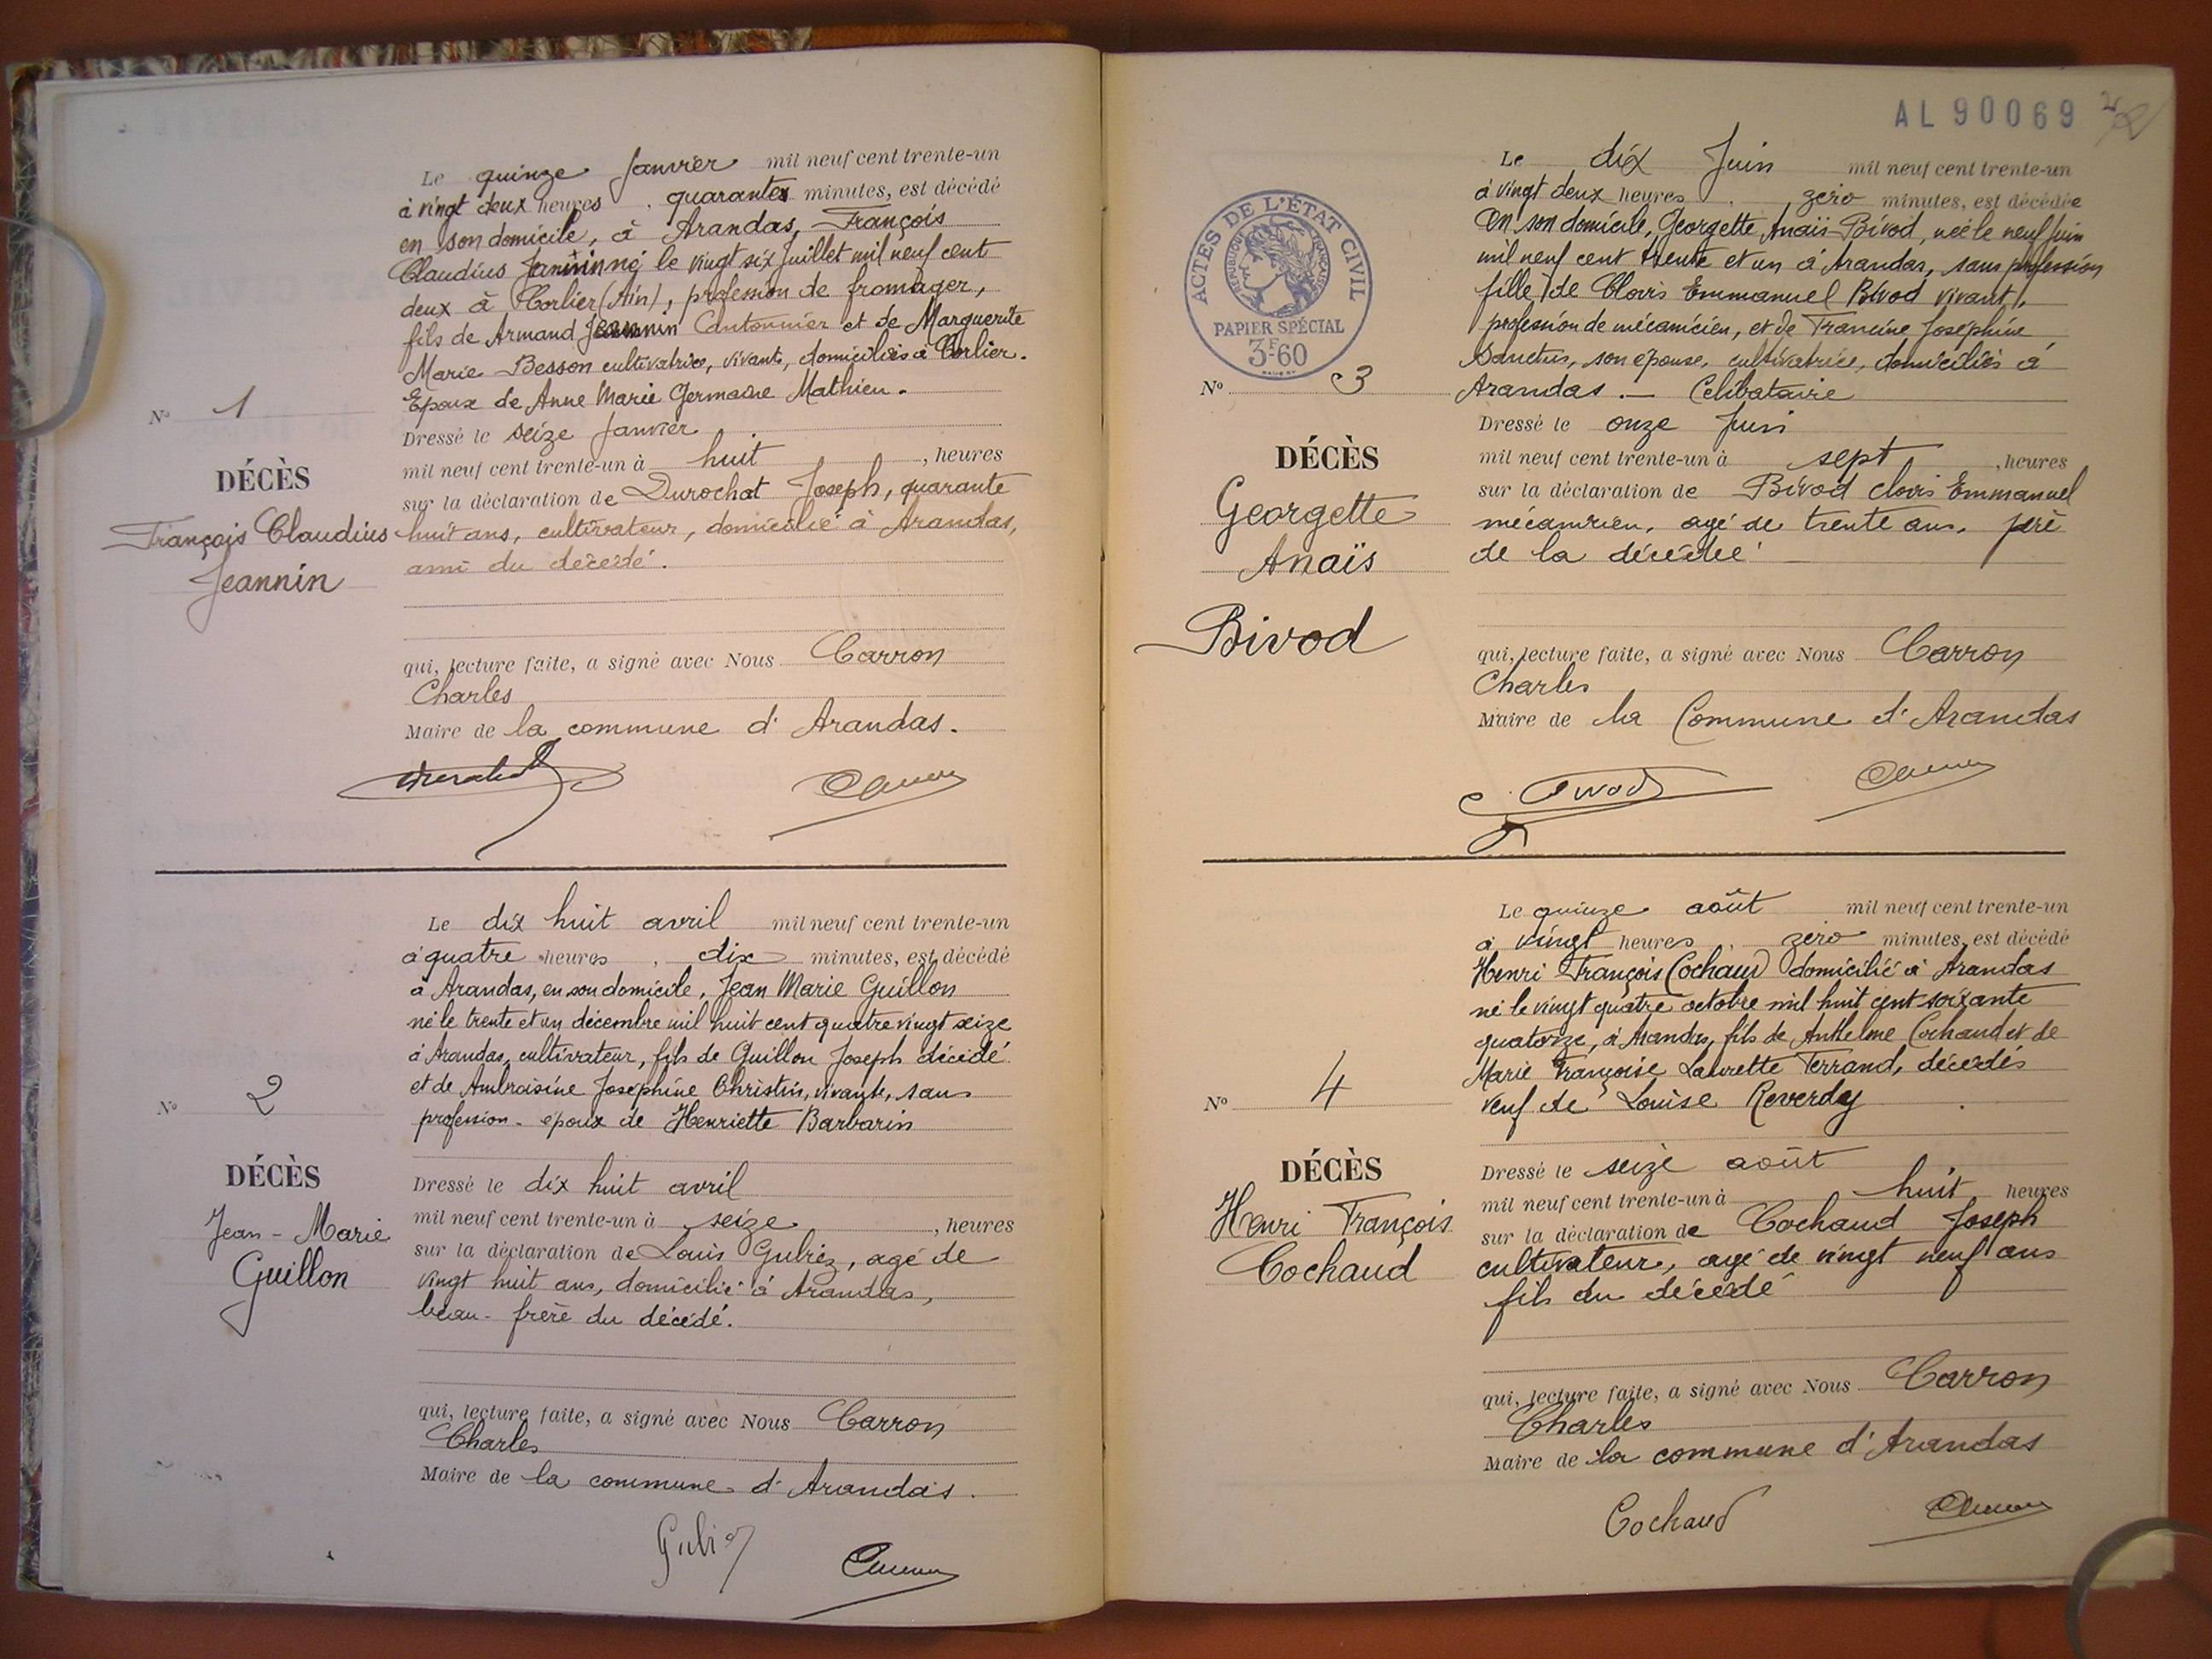 Le quinze Janvier mil neuf cent trente-un
à vingt deux heures quarante minutes, est décédé
en son domicile, à Arandas, François
Claudius Jeannin né le vingt six Juillet mil neuf cent
deux à Corlier (Ain), profession de fromager,
fils de Armand Jeannin Cantonnier et de Marguerite
Marie Besson cultivatrice, vivants, domiciliés à Corlier.
Epoux de Anne Marie Germaine Mathieu.
N° 1
Dressé le seize Janvier
mil neuf cent trente-un à huit, heures
DÉCÈS
sur la déclaration de Durochat Joseph, quarante
François Claudius
huit ans, cultivateur, domicilié à Arandas,
Jeannin
ami du décédé.
qui, lecture faite, a signé avec Nous Carron
Charles
Maire de la commune d'Arandas.
Le dix huit avril mil neuf cent trente-un
à quatre heures, dix minutes, est décédé
à Arandas, en son domicile, Jean Marie Guillon
né le trente et un décembre mil huit cent quatre vingt seize
à Arandas, cultivateur, fils de Guillon Joseph décédé
et de Ambroisine Josephine Christin, vivante, sans
N° 2
profession - époux de Henriette Barbarin
DÉCÈS
Dressé le dix huit avril
Jean-Marie
mil neuf cent trente-un à seize, heures
Guillon
sur la déclaration de Louis Gubiez, agé de
vingt huit ans, domicilié à Arandas,
beau-frère du décédé.
qui, lecture faite, a signé avec Nous Carron
Charles
Maire de la commune d'Arandas.
AL 90069
ACTES DE L'ÉTAT CIVIL
RÉPUBLIQUE FRANÇAISE
PAPIER SPÉCIAL
3F60
Le dix Juin mil neuf cent trente-un
à vingt deux heures zéro minutes, est décédée
en son domicile, Georgette Anaïs Bivod, née le neuf juin
mil neuf cent trente et un à Arandas, sans profession
fille de Clovis Emmanuel Bivod vivant,
profession de mécanicien, et de Francine Joséphine
Sanctus, son épouse, cultivatrice, domiciliés à
N° 3
Arandas. — Célibataire
DÉCÈS
Dressé le onze Juin
Georgette
mil neuf cent trente-un à sept, heures
Anaïs
sur la déclaration de Bivod Clovis Emmanuel
Bivod
mécanicien, agé de trente ans, père
de la décédée
qui, lecture faite, a signé avec Nous Carron
Charles
Maire de la Commune d'Arandas
Bivod
Le quinze août mil neuf cent trente-un
à vingt heures, zéro minutes, est décédé
Henri François Cochaud domicilié à Arandas
né le vingt quatre octobre mil huit cent soixante
quatorze, à Arandas, fils de Anthelme Cochaud et de
Marie Françoise Laurette Ferrand, décédés
N° 4
veuf de Louise Reverdy
DÉCÈS
Dressé le seize août
Henri François
mil neuf cent trente-un à huit heures
Cochaud
sur la déclaration de Cochaud Joseph
cultivateur, agé de vingt neuf ans
fils du décédé
qui, lecture faite, a signé avec Nous Carron
Charles
Maire de la commune d'Arandas
Cochaud